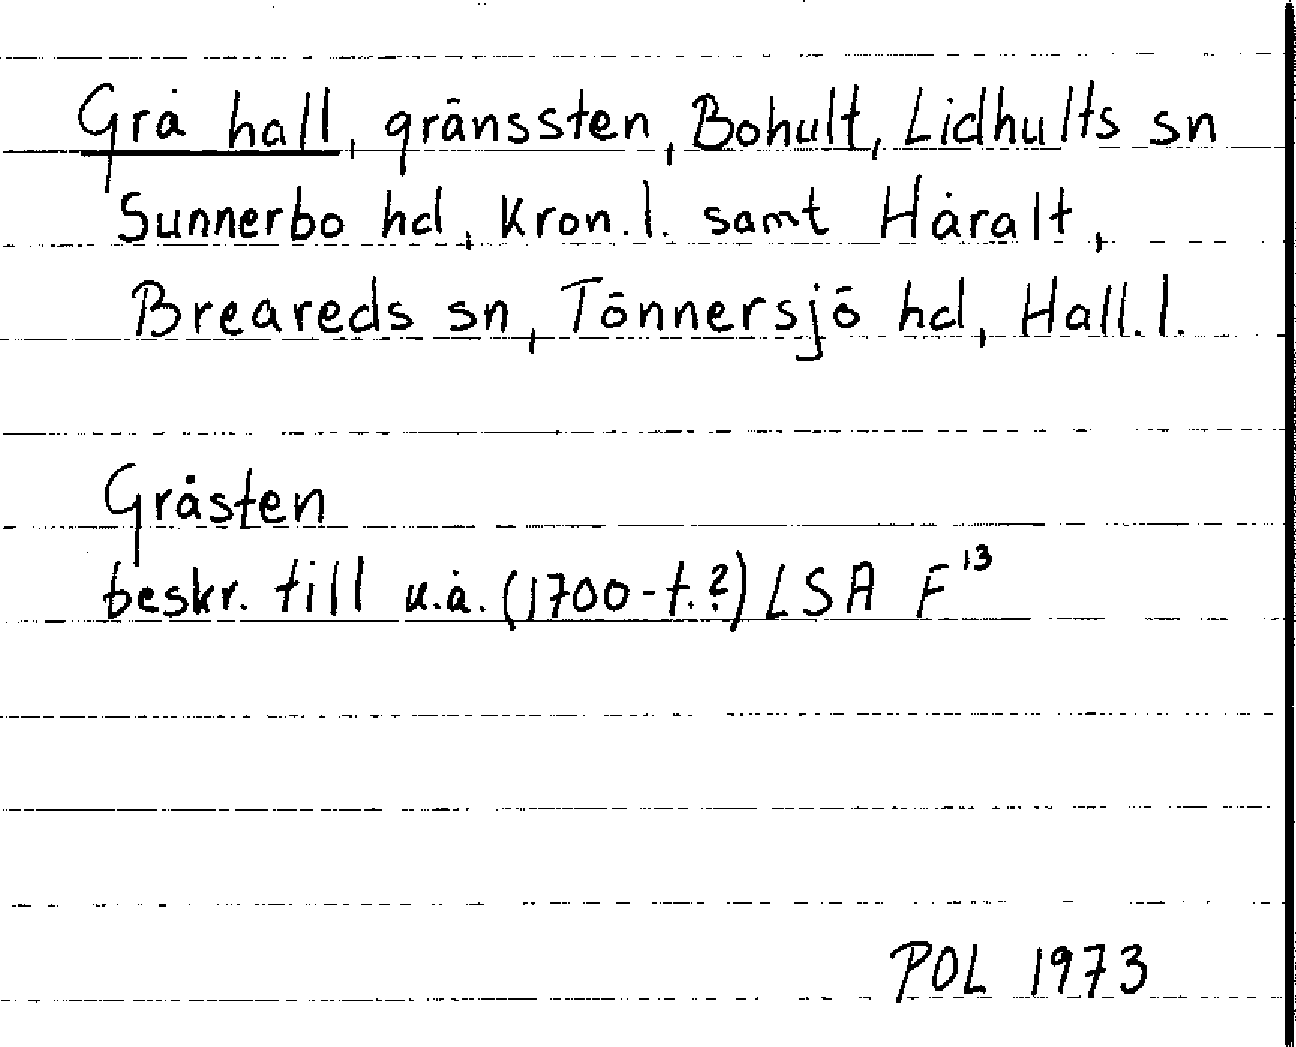 Grå hall, gränssten, Bohult, Lidhults sn
Sunnerbo hd, Kron.l. samt Håralt,
Breareds sn, Tönnersjö hd, Hall.l.
Gråsten
beskr. till u.å. (1700-t.?) LSA F¹³
POL 1973